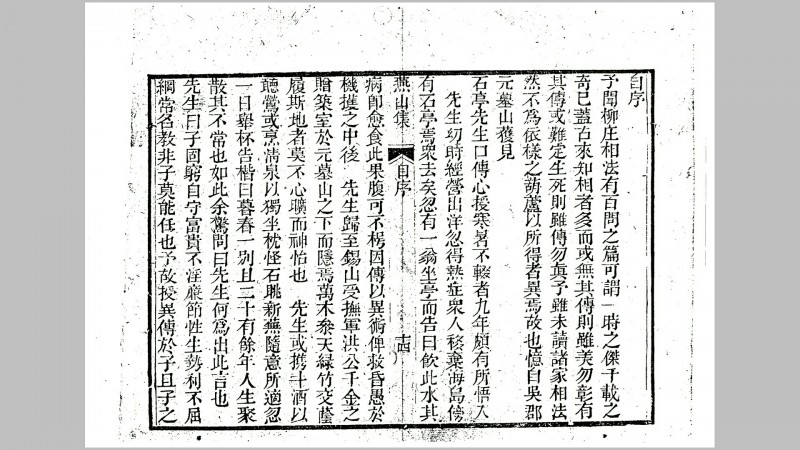 自序
予聞柳庄相法有百問之篇可謂一時之傑千載之
奇已蓋古來知相者多而或無其傳則雖美勿彰有
其傳或難定生死則雖傳勿眞予雖未讀諸家相法
然不爲依樣之葫蘆以所得者異焉故也憶自吳郡
元墓山獲見
石亭先生口傳心授寒暑不輟者九年頗有所悟入
先生幼時經營出洋忽得熱症衆人移棄海島傍
有石亭焉衆去矣忽有一翁坐亭而告曰飲此水其
燕山集
自序
病卽愈食此果腹可不楞因傳以異術俾救昏愚於
機擭之中後 先生歸至錫山受撫軍洪公千金之
贈築室於元墓山之下而隱焉萬木參天綠竹交蔭
履斯地者莫不心曠而神怡也 先生或携斗酒以
聽鶯或烹淸泉以獨坐枕怪石眺新燕隨意所適忽
一日舉杯告楷曰暮春一別且三十有餘年人生聚
散其不常也如此余驚問曰先生何爲出此言也
先生曰子固窮自守富貴不淫廉節性生勢利不屈
綱常名敎非子莫能任也予故授異傳於子且子之